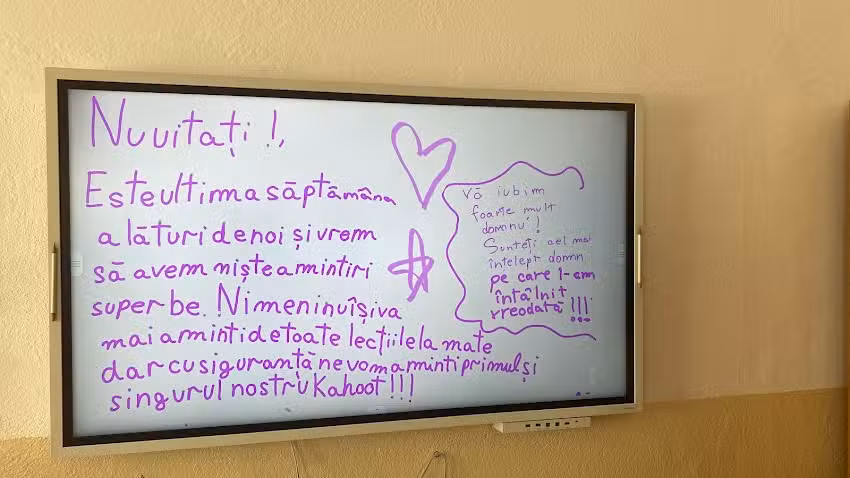 Nu uitați !,
Este ultima săptămâna
alături de noi și vrem
să avem niște amintiri
superbe. Nimeni nu își va
mai aminti de toate lecțiile la mate
dar cu siguranță ne vom aminti primul și
singurul nostru Kahoot!!!
Vă iubim
foarte mult
domnu'!
Sunteți cel mai
întelept domn
pe care l-am
întâlnit
vreodată !!!